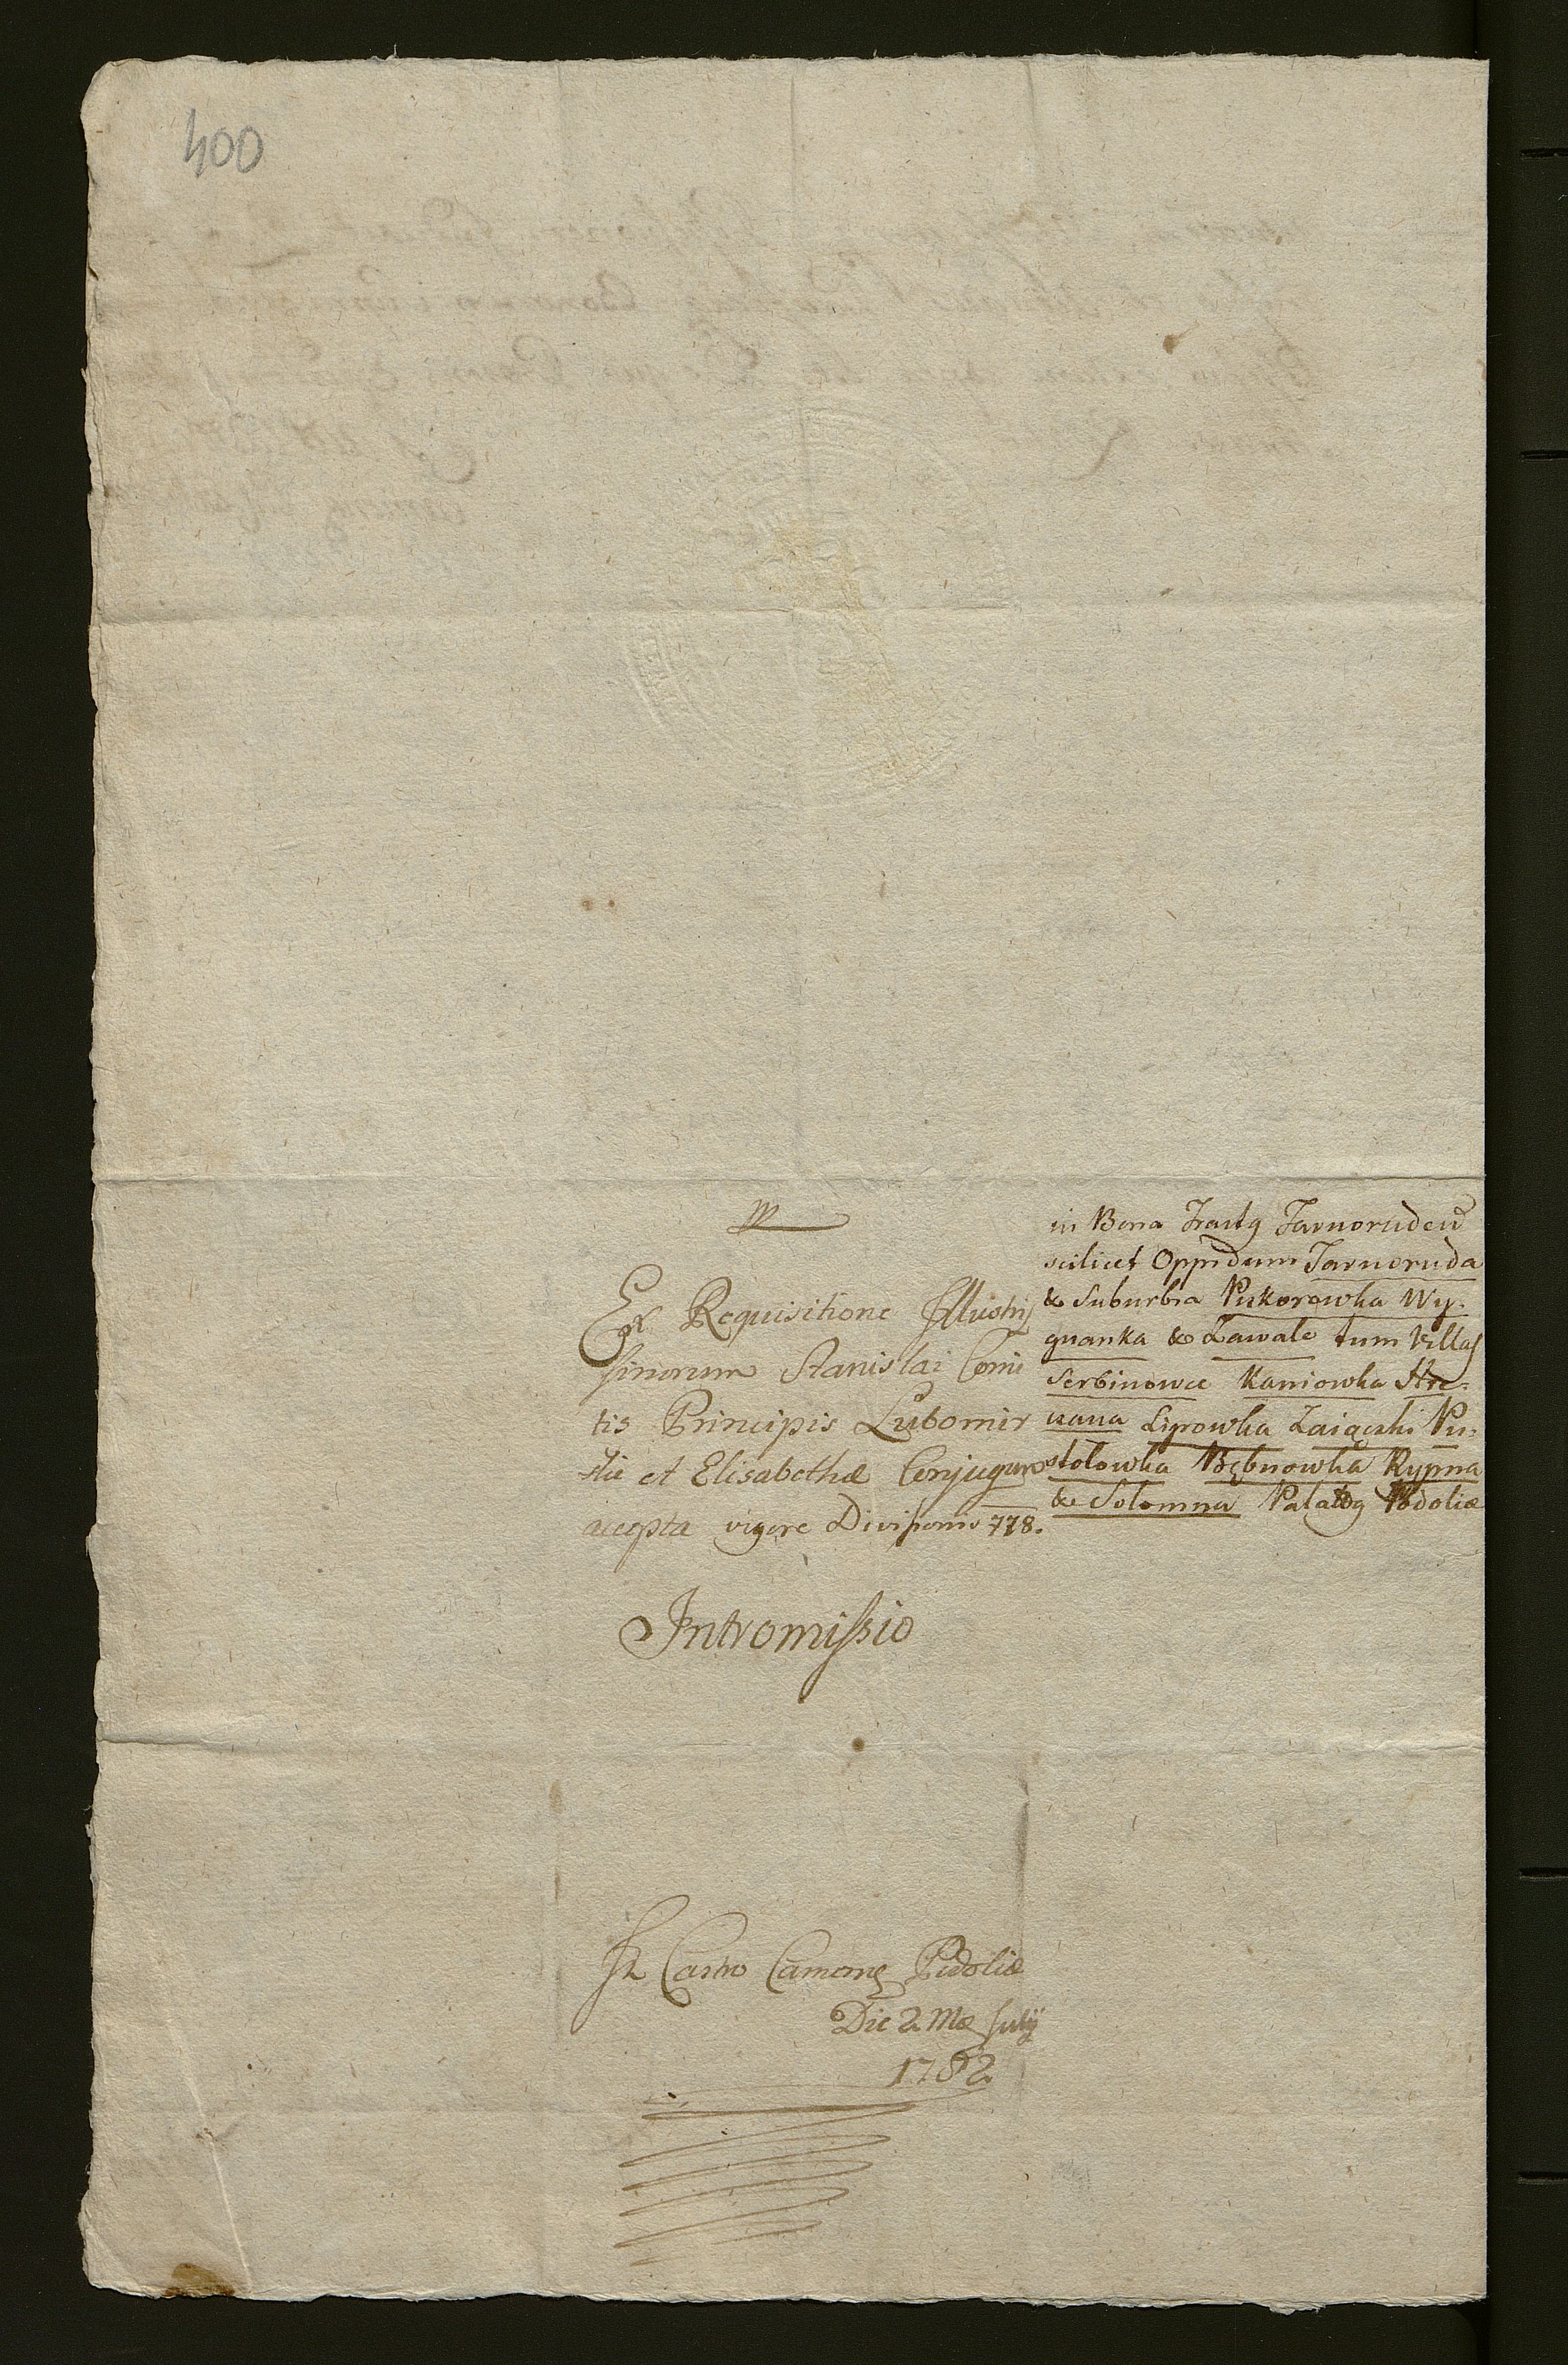 400
Ex Requisitione Illustris
simorum Stanislai Comi
tis Principis Lubomir
skie et Elisabethæ Conjugum
accepta vigore Divisionis 778.
Intromissio
in Bona Tractq Tarnoruden
scilicet Oppidum Tarnoruda
& Suburbia Piskorowka Wy-
gnanka & Zawale tum Villas
Serbinowce Kaniowka Hre-
czana Lipowka Zaiączki Pu-
stolowka Bębnowka Rypna
& Solomna Palatq Podoliæ
In Castro Camene Podoliæ
Die 2. Mæ July
1782